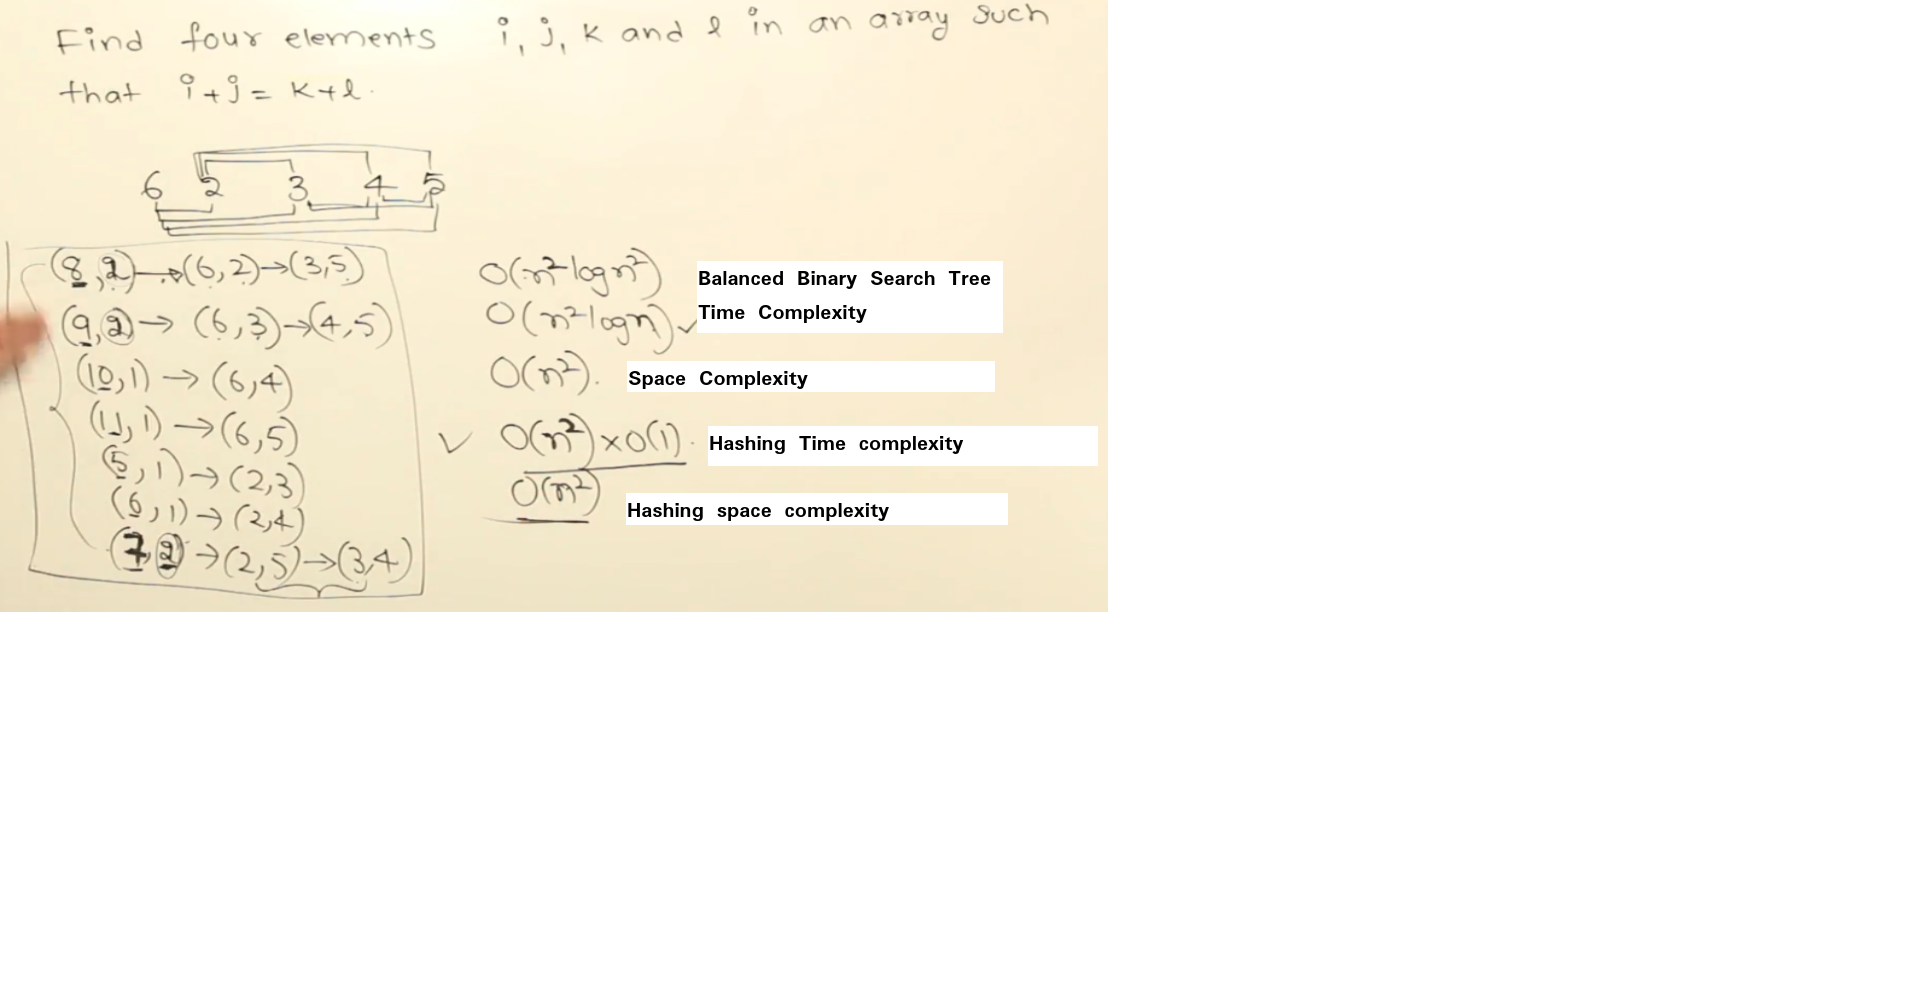 Find four elements i, j, k and l in an array such
that i+j = k+l.
6 2 3 4 5
(8,2)→(6,2)→(3,5)
(9,2)→(6,3)→(4,5)
(10,1)→(6,4)
(11,1)→(6,5)
(5,1)→(2,3)
(6,1)→(2,4)
(7,2)→(2,5)→(3,4)
O(n²logn²)
O(n²logn) ✓
Balanced Binary Search Tree
Time Complexity
O(n²). Space Complexity
✓ O(n²)×O(1). Hashing Time complexity
O(n²) Hashing space complexity